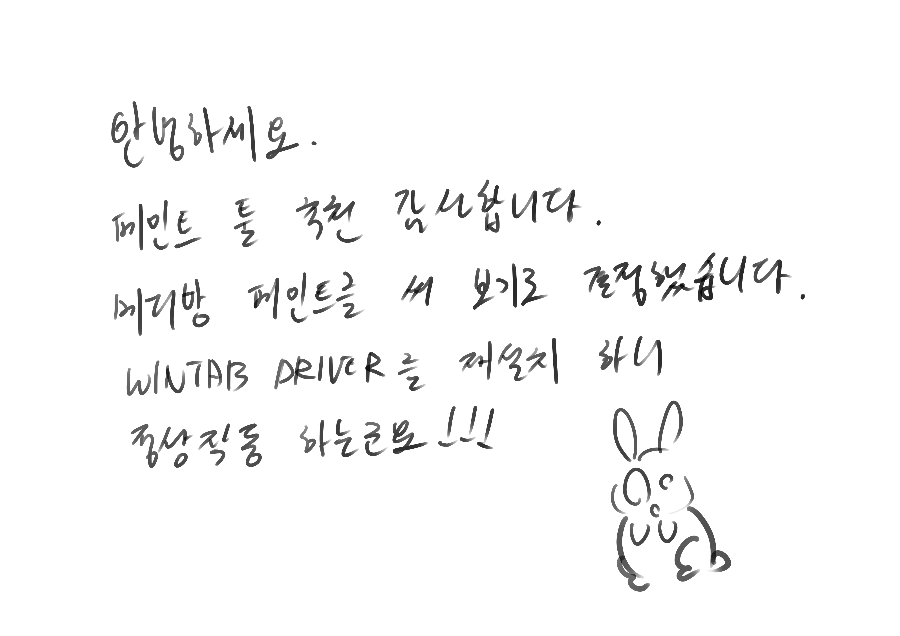 안녕하세요.
페인트 툴 추천 감사합니다.
메디방 페인트를 써 보기로 결정했습니다.
WINTAB DRIVER를 재설치 하니
정상작동 하는군요!!!